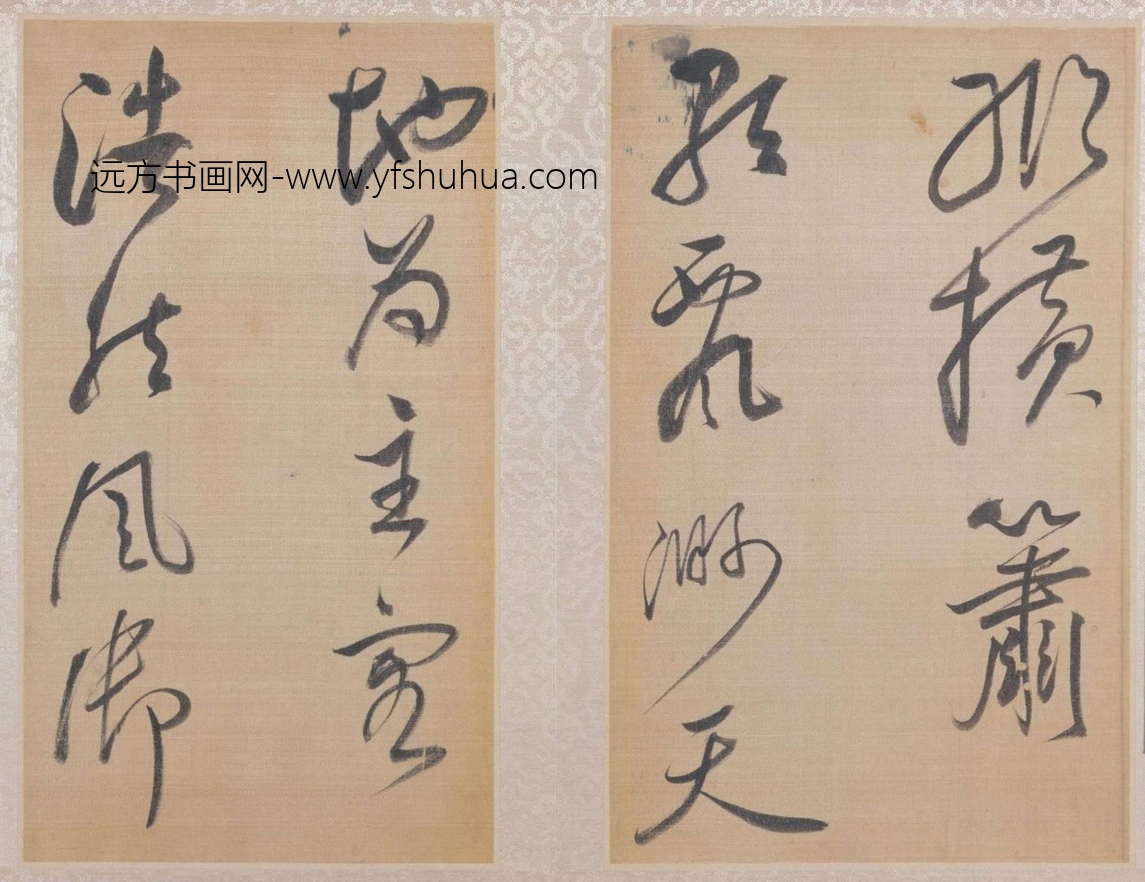 縱橫簫
飄渺天
地為主客
浩然風御
远方书画网-www.yfshuhua.com